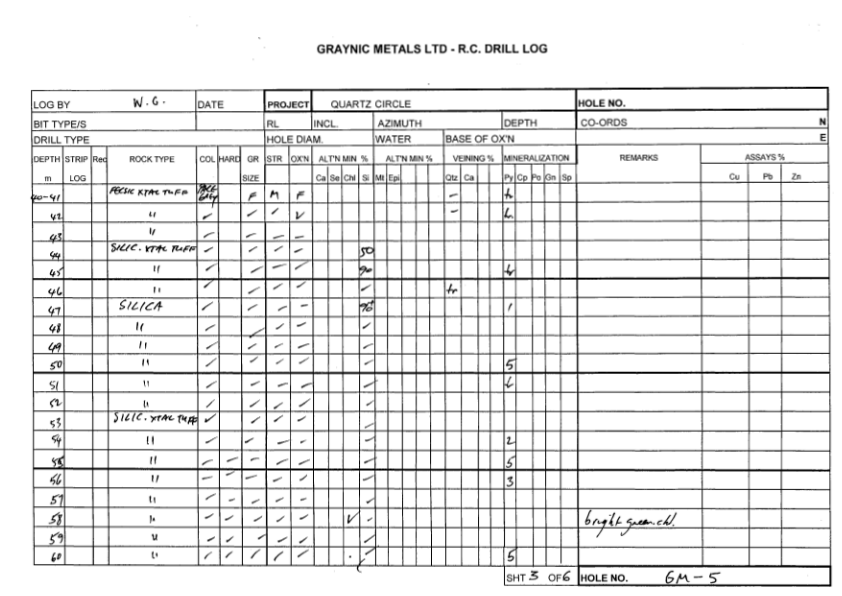 GRAYNIC METALS LTD - R.C. DRILL LOG
LOG BY W.G. DATE PROJECT QUARTZ CIRCLE HOLE NO.
BIT TYPE/S RL INCL. AZIMUTH DEPTH CO-ORDS N
DRILL TYPE HOLE DIAM. WATER BASE OF OX'N E
DEPTH STRIP Rec ROCK TYPE COL HARD GR STR OX'N ALT'N MIN % ALT'N MIN % VEINING % MINERALIZATION REMARKS ASSAYS %
m LOG SIZE Ca Se Chl Si Mt Epi Qtz Ca Py Cp Po Gn Sp Cu Pb Zn
40-41 FELSIC XTAL TUFF PALE GREY F M F - tr
42 " ✓ ✓ ✓ ✓ - tr
43 " ✓ - - -
44 SILIC. XTAL TUFF ✓ ✓ ✓ - 50
45 " ✓ ✓ - - 90 tr
46 " ✓ ✓ - - ✓ tr
47 SILICA ✓ ✓ - - 90+ 1
48 " ✓ ✓ - - ✓
49 " ✓ ✓ - - ✓
50 " ✓ ✓ - - ✓ 5
51 " ✓ - - - ✓ tr
52 " ✓ ✓ - - ✓
53 SILIC. XTAL TUFF ✓ ✓ ✓ - ✓
54 " ✓ - - - ✓ 2
55 " - - - - - ✓ 5
56 " - - - - - ✓ 3
57 " ✓ - - - - ✓
58 " - - - - - ✓ - bright green chl.
59 " - - ✓ - - ✓
60 " ✓ ✓ ✓ ✓ ✓ . ✓ 5
SHT 3 OF 6 HOLE NO. GM-5